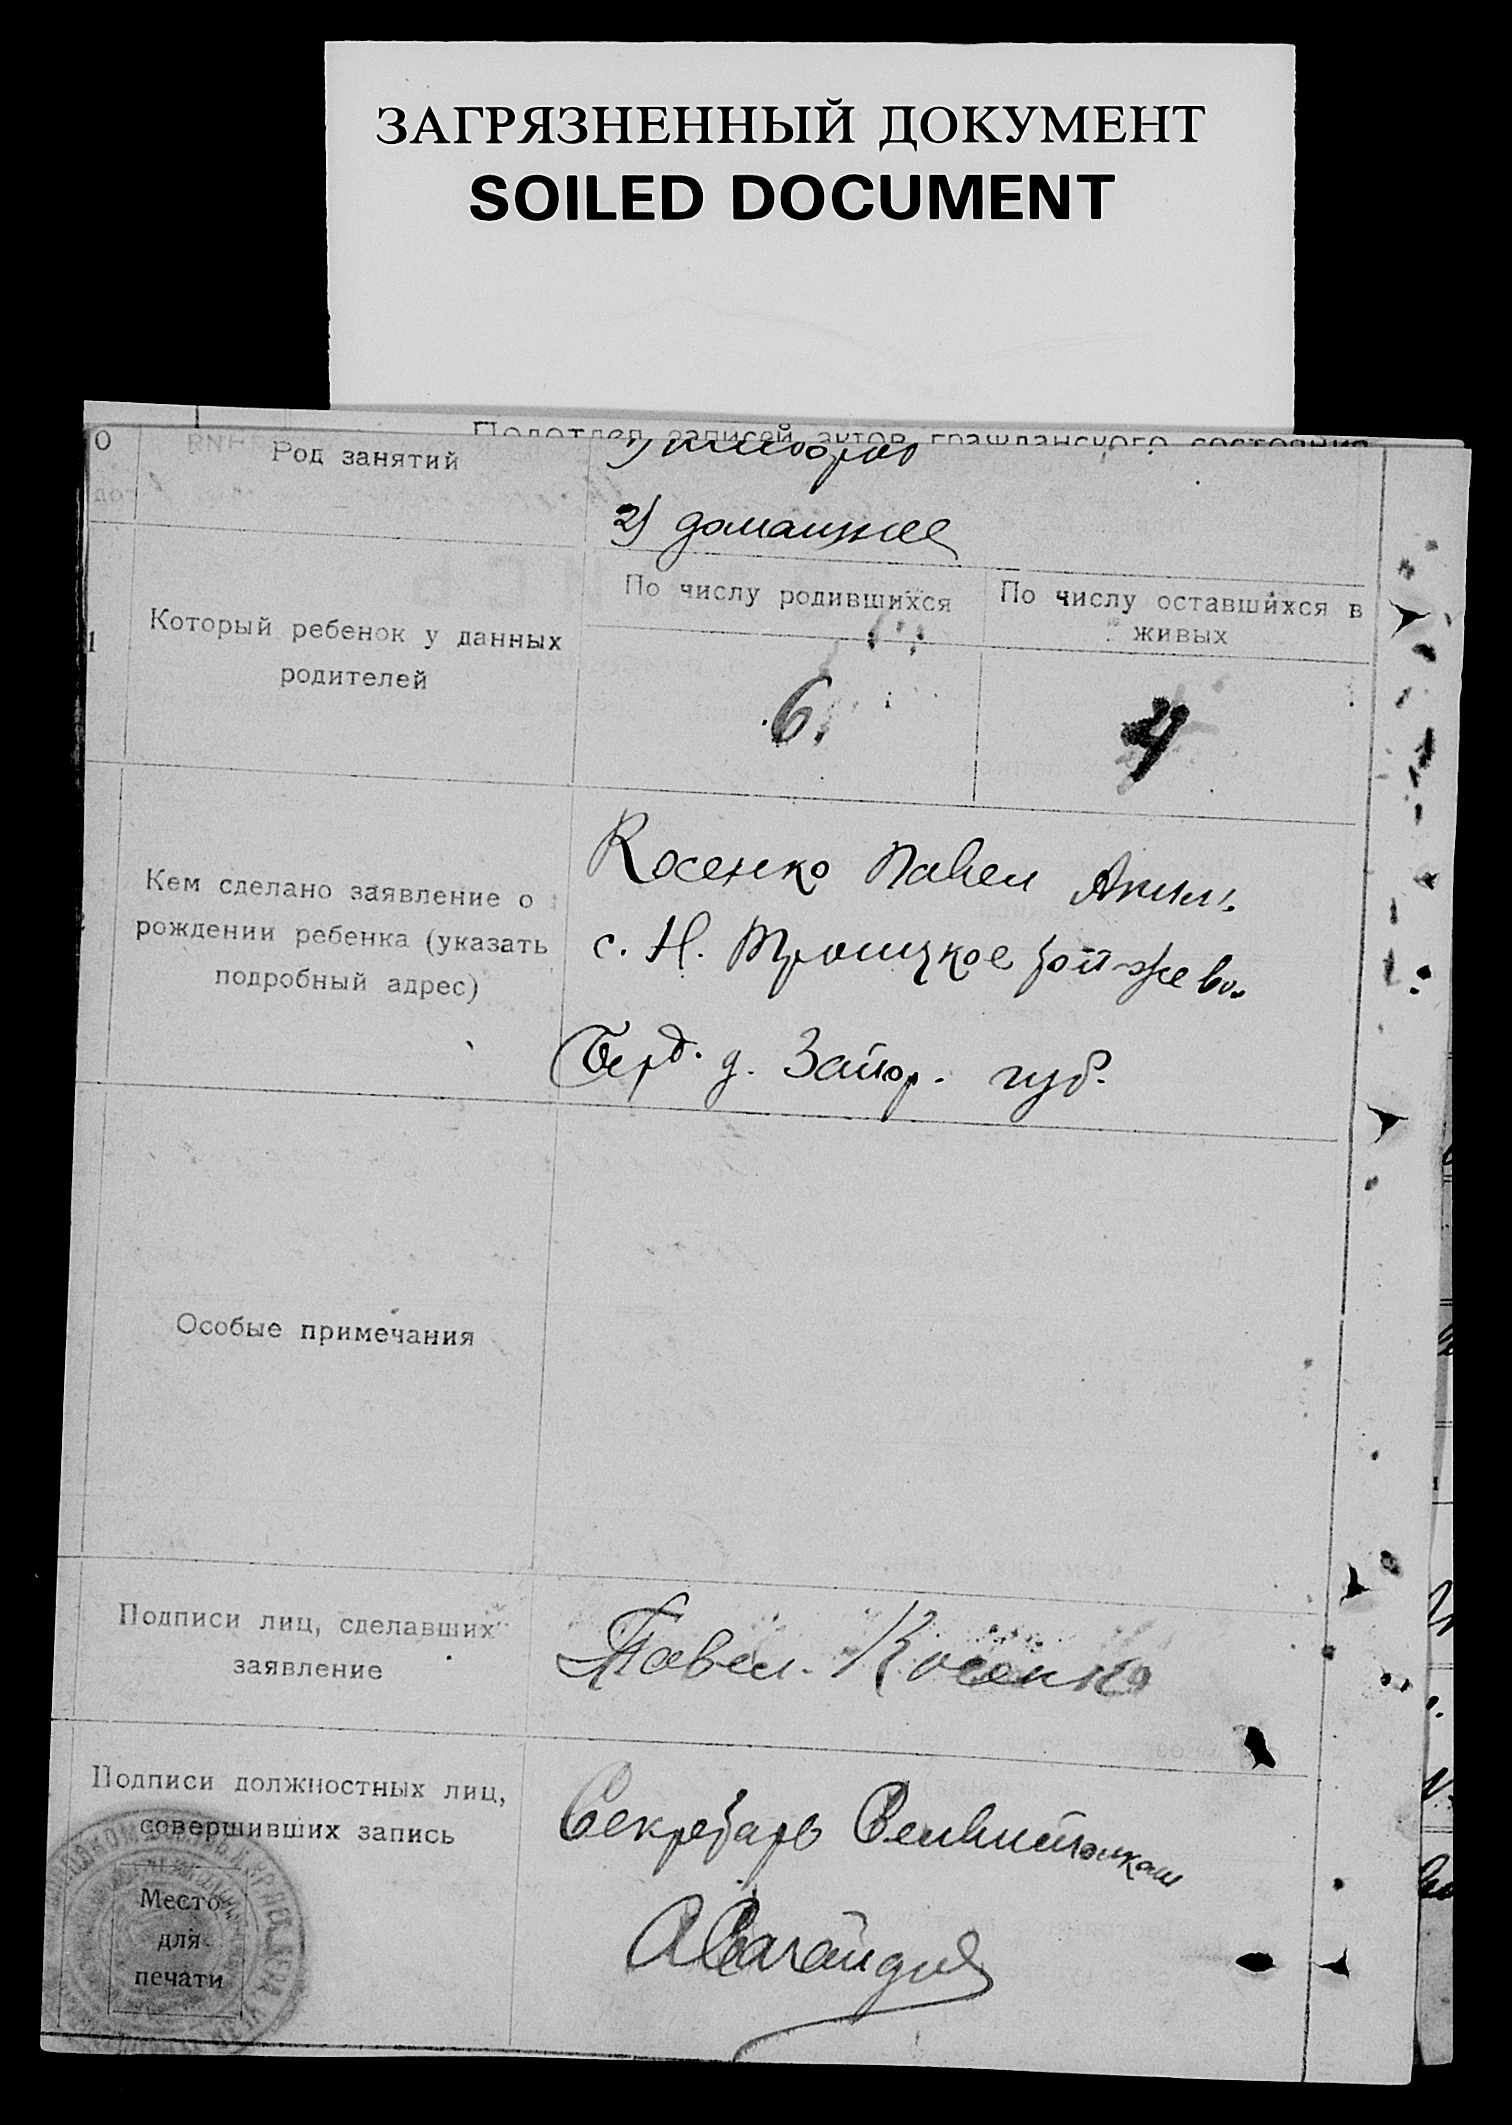 ЗАГРЯЗНЕННЫЙ ДОКУМЕНТ
SOILED DOCUMENT
Подотдел записей актов гражданского состояния
Род занятий
2) домашнее
Который ребенок у данных
родителей
По числу родившихся
По числу оставшихся в
живых
6.
4
Кем сделано заявление о
рождении ребенка (указать
подробный адрес)
Косенко Павел
с. Н. Троицкое той-же во.
Берд. у. Запор. губ.
Особые примечания
Подписи лиц, сделавших
заявление
Павел Косенко
Подписи должностных лиц,
совершивших запись
Место
для
печати
Секретарь